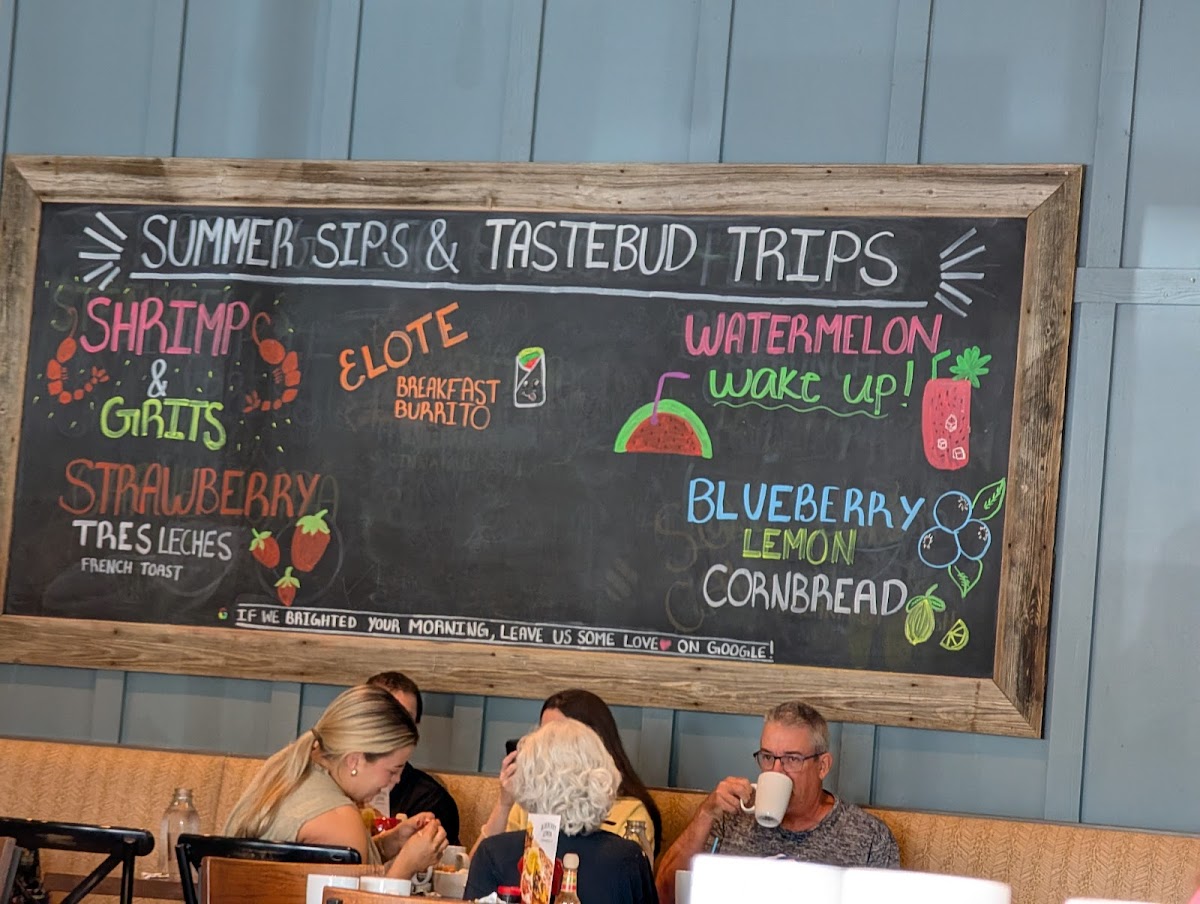 SUMMER SIPS & TASTEBUD TRIPS
SHRIMP
&
GRITS
ELOTE
BREAKFAST
BURRITO
WATERMELON
wake up!
STRAWBERRY
TRES LECHES
FRENCH TOAST
BLUEBERRY
LEMON
CORNBREAD
IF WE BRIGHTED YOUR MORNING, LEAVE US SOME LOVE ON GOOGLE!